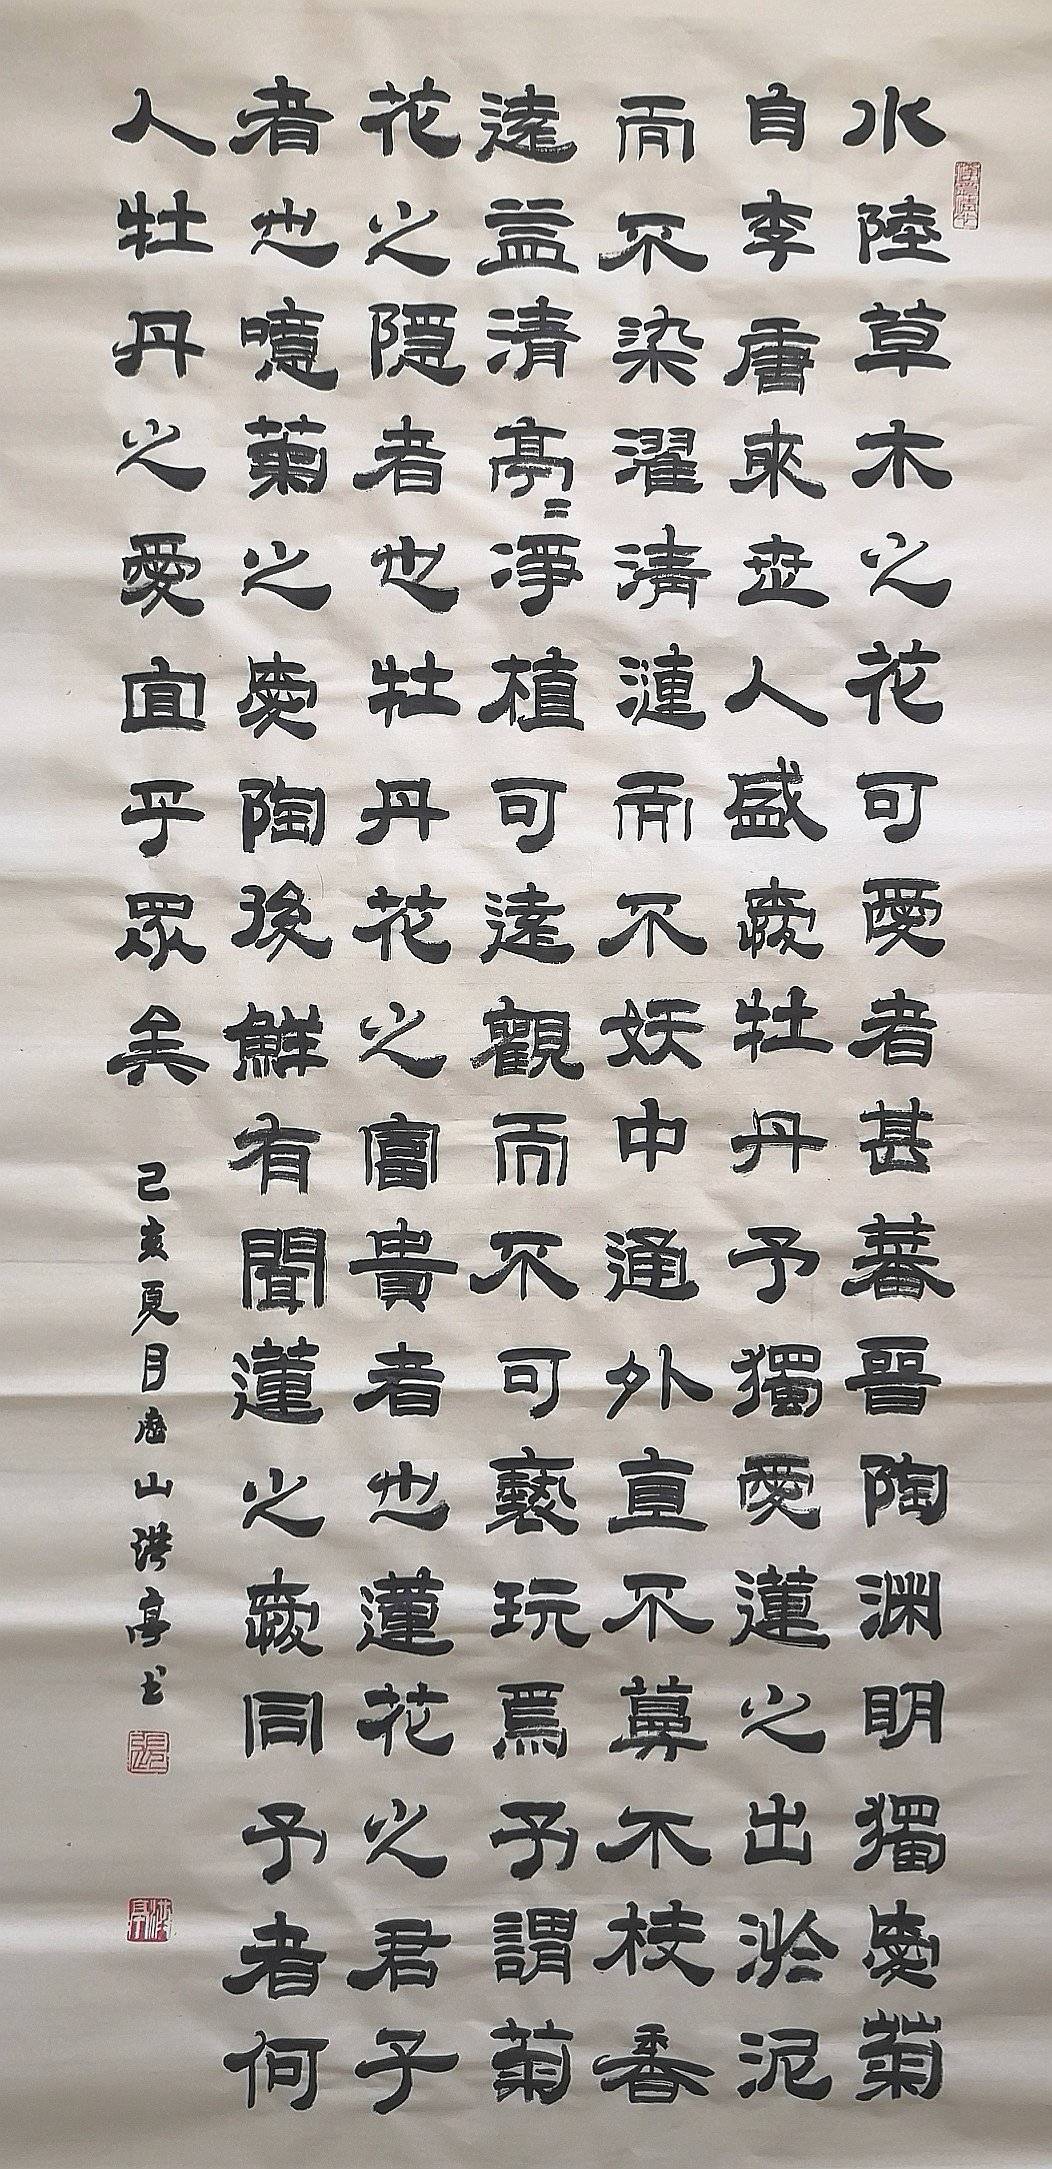 水陸草木之花可愛者甚蕃晉陶渊明獨愛菊
自李唐來世人盛愛牡丹予獨愛蓮之出淤泥
而不染濯清漣而不妖中通外直不蔓不枝香
遠益清亭〻淨植可遠觀而不可褻玩焉予謂菊
花之隠者也牡丹花之富貴者也蓮花之君子
者也噫菊之愛陶後鮮有聞蓮之愛同予者何
人牡丹之愛宜乎眾矣
己亥夏月 山洪亭书